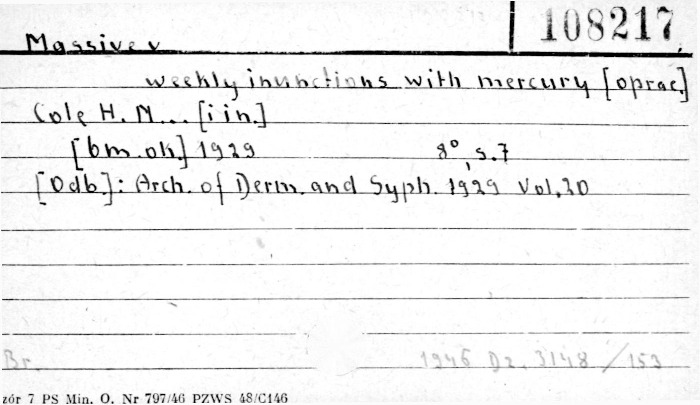 108217
Massive v
weekly inunctions with mercury [oprac.]
Cole H. M... [i in.]
[bm. ok.] 1929 8°, s. 7
[Odb]: Arch. of Derm. and Syph. 1929 Vol. 20
Br. 1946 Dz. 3148/153
zór 7 PS Min. O. Nr 797/46 PZWS 48/C146